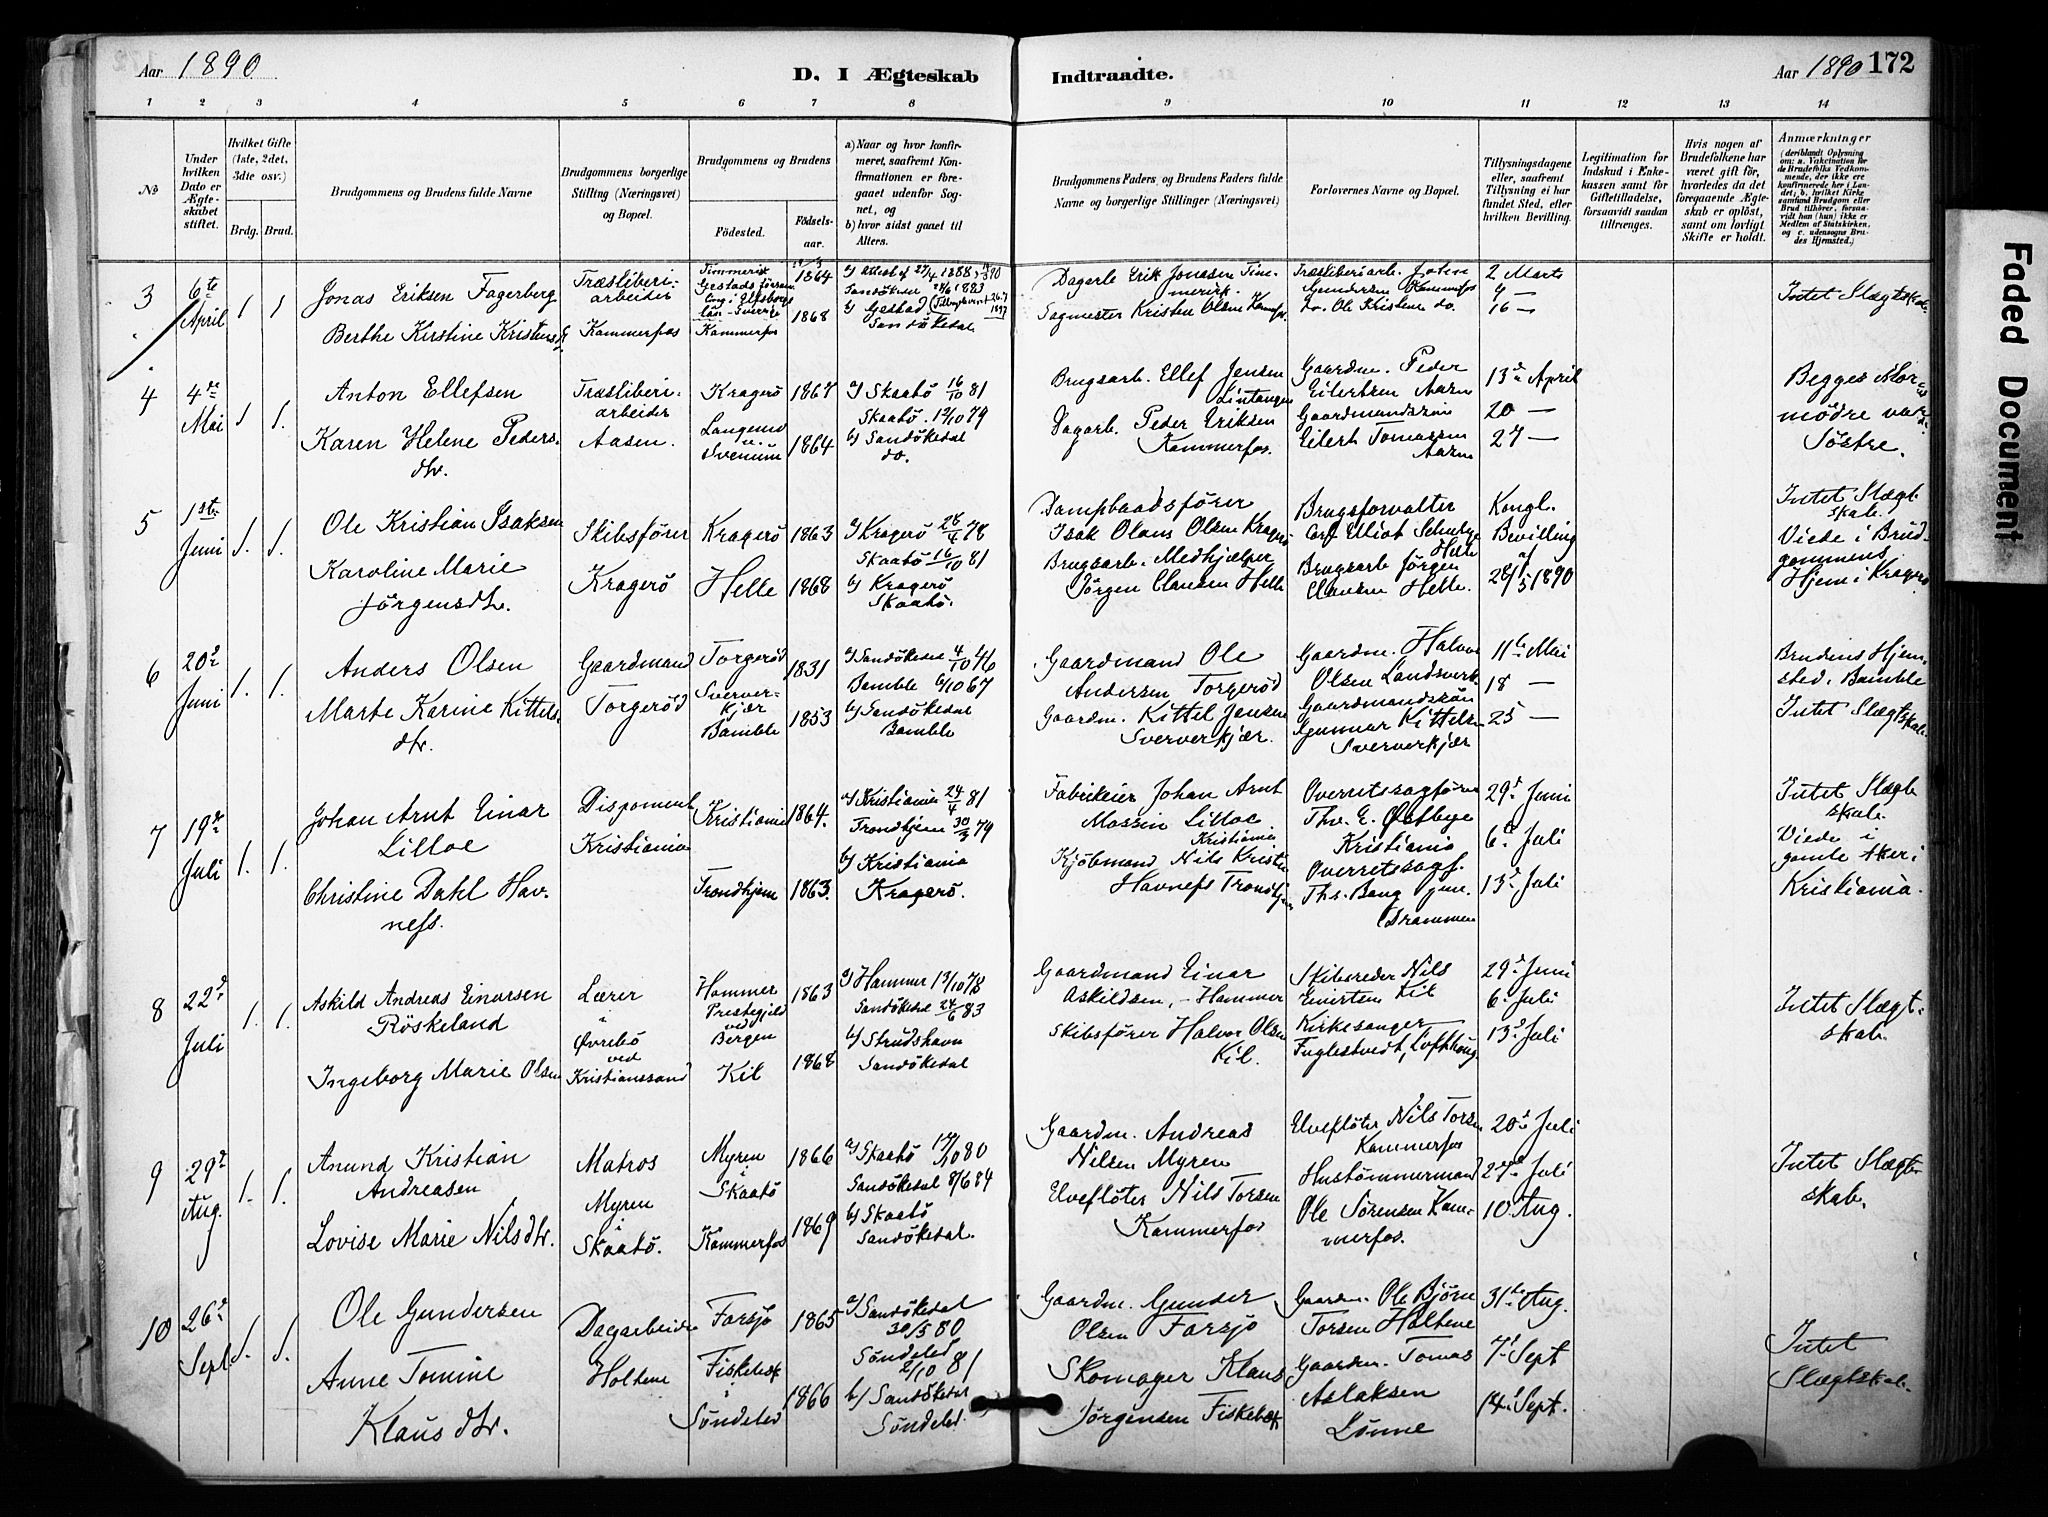 Aar 1890.
D. I Ægteskab Indtraadte.
Aar 1890 172
1 2 3 4 5 6 7 8 9 10 11 12 13 14
No
Under hvilken Dato er Ægteskabet stiftet.
Hvilket Gifte (1ste, 2det, 3die osv.)
Brdg. Brud.
Brudgommens og Brudens fulde Navne
Brudgommens borgerlige Stilling (Næringsvei) og Bopæl.
Brudgommens og Brudens
Födested. Födselsaar.
a) Naar og hvor konfirmeret, saafremt Konfirmationen er foregaaet udenför Sognet, og
b) hvor sidst gaaet til Alters.
Brudgommens Faders og Brudens Faders fulde Navne og borgerlige Stillinger (Næringsvei)
Forlovernes Navne og Bopæl.
Tillysningsdagene eller, saafremt Tillysning ei har fundet Sted, efter hvilken Bevilling.
Legitimation for Indskud i Enkekassen samt for Giftetilladelse, forsaavidt saadan tiltrænges.
Hvis nogen af Brudefolkene har været gift för, hvorledes da det foregaaende Ægteskab er oplöst, samt om lovligt Skifte er holdt.
Anmærkninger
3 6te April 1 1
Jonas Eriksen Fagerberg
Berthe Kirstine Kristens
Træsliberiarbeider
Kammerfos
Kammerfos
1864
1868
Sandökedal
Dagarb. Erik Jonassen
Sagmester Kristen Olsen
Ole Kristens. do.
2 Marts
9 —
16 —
Intet Slægtskab.
4 4de Mai 1 1.
Anton Ellefsen
Karen Helene Pedersdtr.
Træsliberiarbeider
Aasen.
Kragerö
1864
a) Skaatö 16/10 81
Skaatö. 12/10 79
b) Sandökedal
do.
Brugsarb. Ellef Jensen
Dagarb. Peder Eriksen
Kammerfos.
Gaardm. Peder
Eilertsen
Gaardmandssön
Eilert Tomassen
13de April
20 —
27 —
Begges Mormödre var Söstre.
5 1ste Juni 1. 1.
Ole Kristian Isaksen
Karoline Marie
Jörgensdtr.
Skibsförer
Kragerö
Kragerö 1863
Helle 1868
a) Kragerö 28/4 78
Skaatö 16/10 81
b) Kragerö
Skaatö.
Dampbaadsförer
Isak Olaus Olsen Kragerö
Brugsarb. Medhjælper
Jörgen Clausen Helle
Brugsforvalter
Helle
Brugsarb. Jörgen
Clausen Helle.
Kongl.
Bevilling
af
28/5 1890
Intet Slægtskab.
Viede i Brudgommens
Hjem i Kragerö
6 20de Juni 1. 1.
Anders Olsen
Marte Karine Kittelsdtr.
Gaardmand
Torgeröd
Torgeröd 1831
Sververkjær
Bamble 1853
a) Sandökedal 4/10 46
Bamble 6/10 67
b) Sandökedal
Bamble
Gaardmand Ole
Andersen Torgeröd
Gaardm. Kittel Jensen
Sververkjær.
Gaardm. Halvor
Olsen Landsverk
Gaardmandssön
Gunnar Kittelsen
Sververkjær
11te Mai
18 —
25 —
Brudens Hjemsted, Bamble
Intet Slægtskab.
7 19de Juli 1. 1.
Johan Arnt Einar
Lilloe
Christine Dahl Havnefs.
Disponent
Kristiania
Kristiania 1864.
Trondhjem 1863.
a) Kristiania 24/4 81
Trondhjem 30/3 79
b) Kristiania
Kragerö.
Fabrikeier Johan Arnt
Lilloe
Kristiania
Kjöbmand Nils
Havnefs Trondhjem
Overretssagförer
Thv. E. Østbye
Kristiania
Overretssagf.
Ths. Bang jun.
Drammen
29de Juni
6te Juli
13de Juli
Intet Slægtskab.
Viede i
gamle Aker i
Kristiania.
8 22de Juli 1. 1.
Askild Andreas Einarsen
Röskeland
Ingeborg Marie Olsen
Lærer
i
Øvrebö
ved
Kristianssand
Hammer
Prestegjeld
ved
Bergen
Kil
1863
1868
a) Hammer 13/10 78
Sandökedal 24/6 83
b) Strudshavn
Sandökedal
Gaardmand Einar
Askildsen, Hammer
Skibsförer Halvor Olsen
Kil.
Skibsreder Nils
Kil
Kirkesanger
Fuglestvedt,
29de Juni
6te Juli
13de Juli
Intet Slægtskab.
9 29de Aug. 1. 1.
Anund Kristian
Andreasen
Lovise Marie Nilsdtr.
Matros
Myren
i
Skaatö.
Myren
i
Skaatö
Kammerfos
1866
1869
a) Skaatö 17/10 80
Sandökedal 8/6 84
b) Skaatö
Sandökedal.
Gaardm. Andreas
Nilsen Myren
Elveflöter Nils Torsen
Kammerfos
Elveflöter Nils Torsen
Kammerfos
Hustömmermand
Ole Sörensen Kammerfos.
20de Juli
27de Juli
10 Aug.
Intet Slægtskab.
10 26de Sept 1. 1.
Ole Gundersen
Anne Tomine
Klausdtr.
Dagarbeider
Holtene
Farsjö
Fiskebæk
i
Söndeled
1865
1866
a) Sandökedal
30/5 80
Söndeled
2/10 81
b) Sandökedal
Söndeled.
Gaardm. Gunder
Olsen Farsjö
Skomager Klaus
Jörgensen Fiskebæk
Gaardm. Ole Björn
Torsen Holtene
Gaardm. Tomas
Aslaksen
Lönne
31te Aug.
7de Sept
14de Sept.
Intet
Slægtskab.
Faded Document